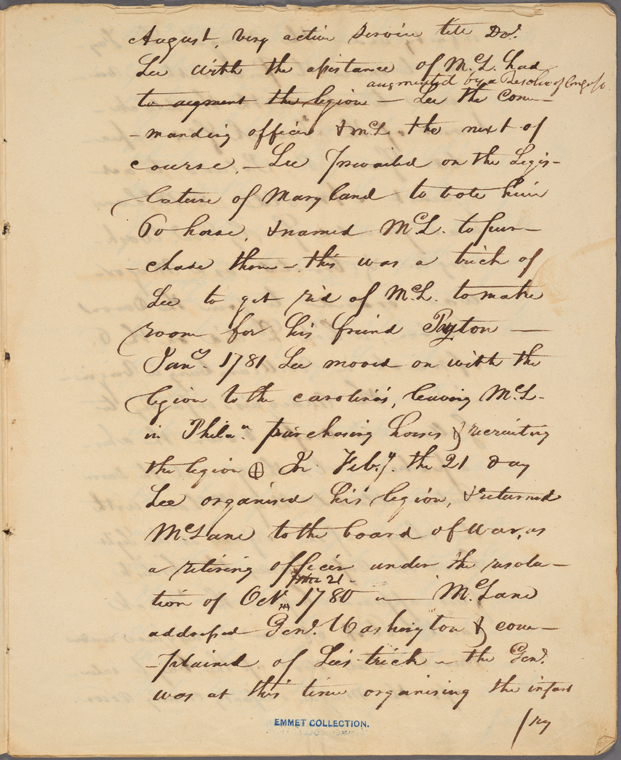 August, very active Service till Do.
Lee with the assistance of McL. had
augmented by a Resolve of Congress
to augment the legion — Lee the com-
-manding officer & McL the next of
course. — Lee prevailed on the Legis-
lature of Maryland to vote him
60 horse, & named McL. to pur-
-chase them — this was a trick of
Lee to get rid of McL. to make
room for his friend Payton —
Jany. 1781 Lee moved on with the
legion to the carolina's, leaving McL-
in Phila. purchasing horses & recruiting
the legion ⊕ In Feby. the 21 day
Lee organised his legion, & returned
McLane to the board of War, as
a retiring officer under the resolu-
21
tion of Oct. 1780 — McLane
addressed Genl. Washington & com-
-plained of Lee's trick — the Genl.
was at this time organising the infant
/ry
EMMET COLLECTION.